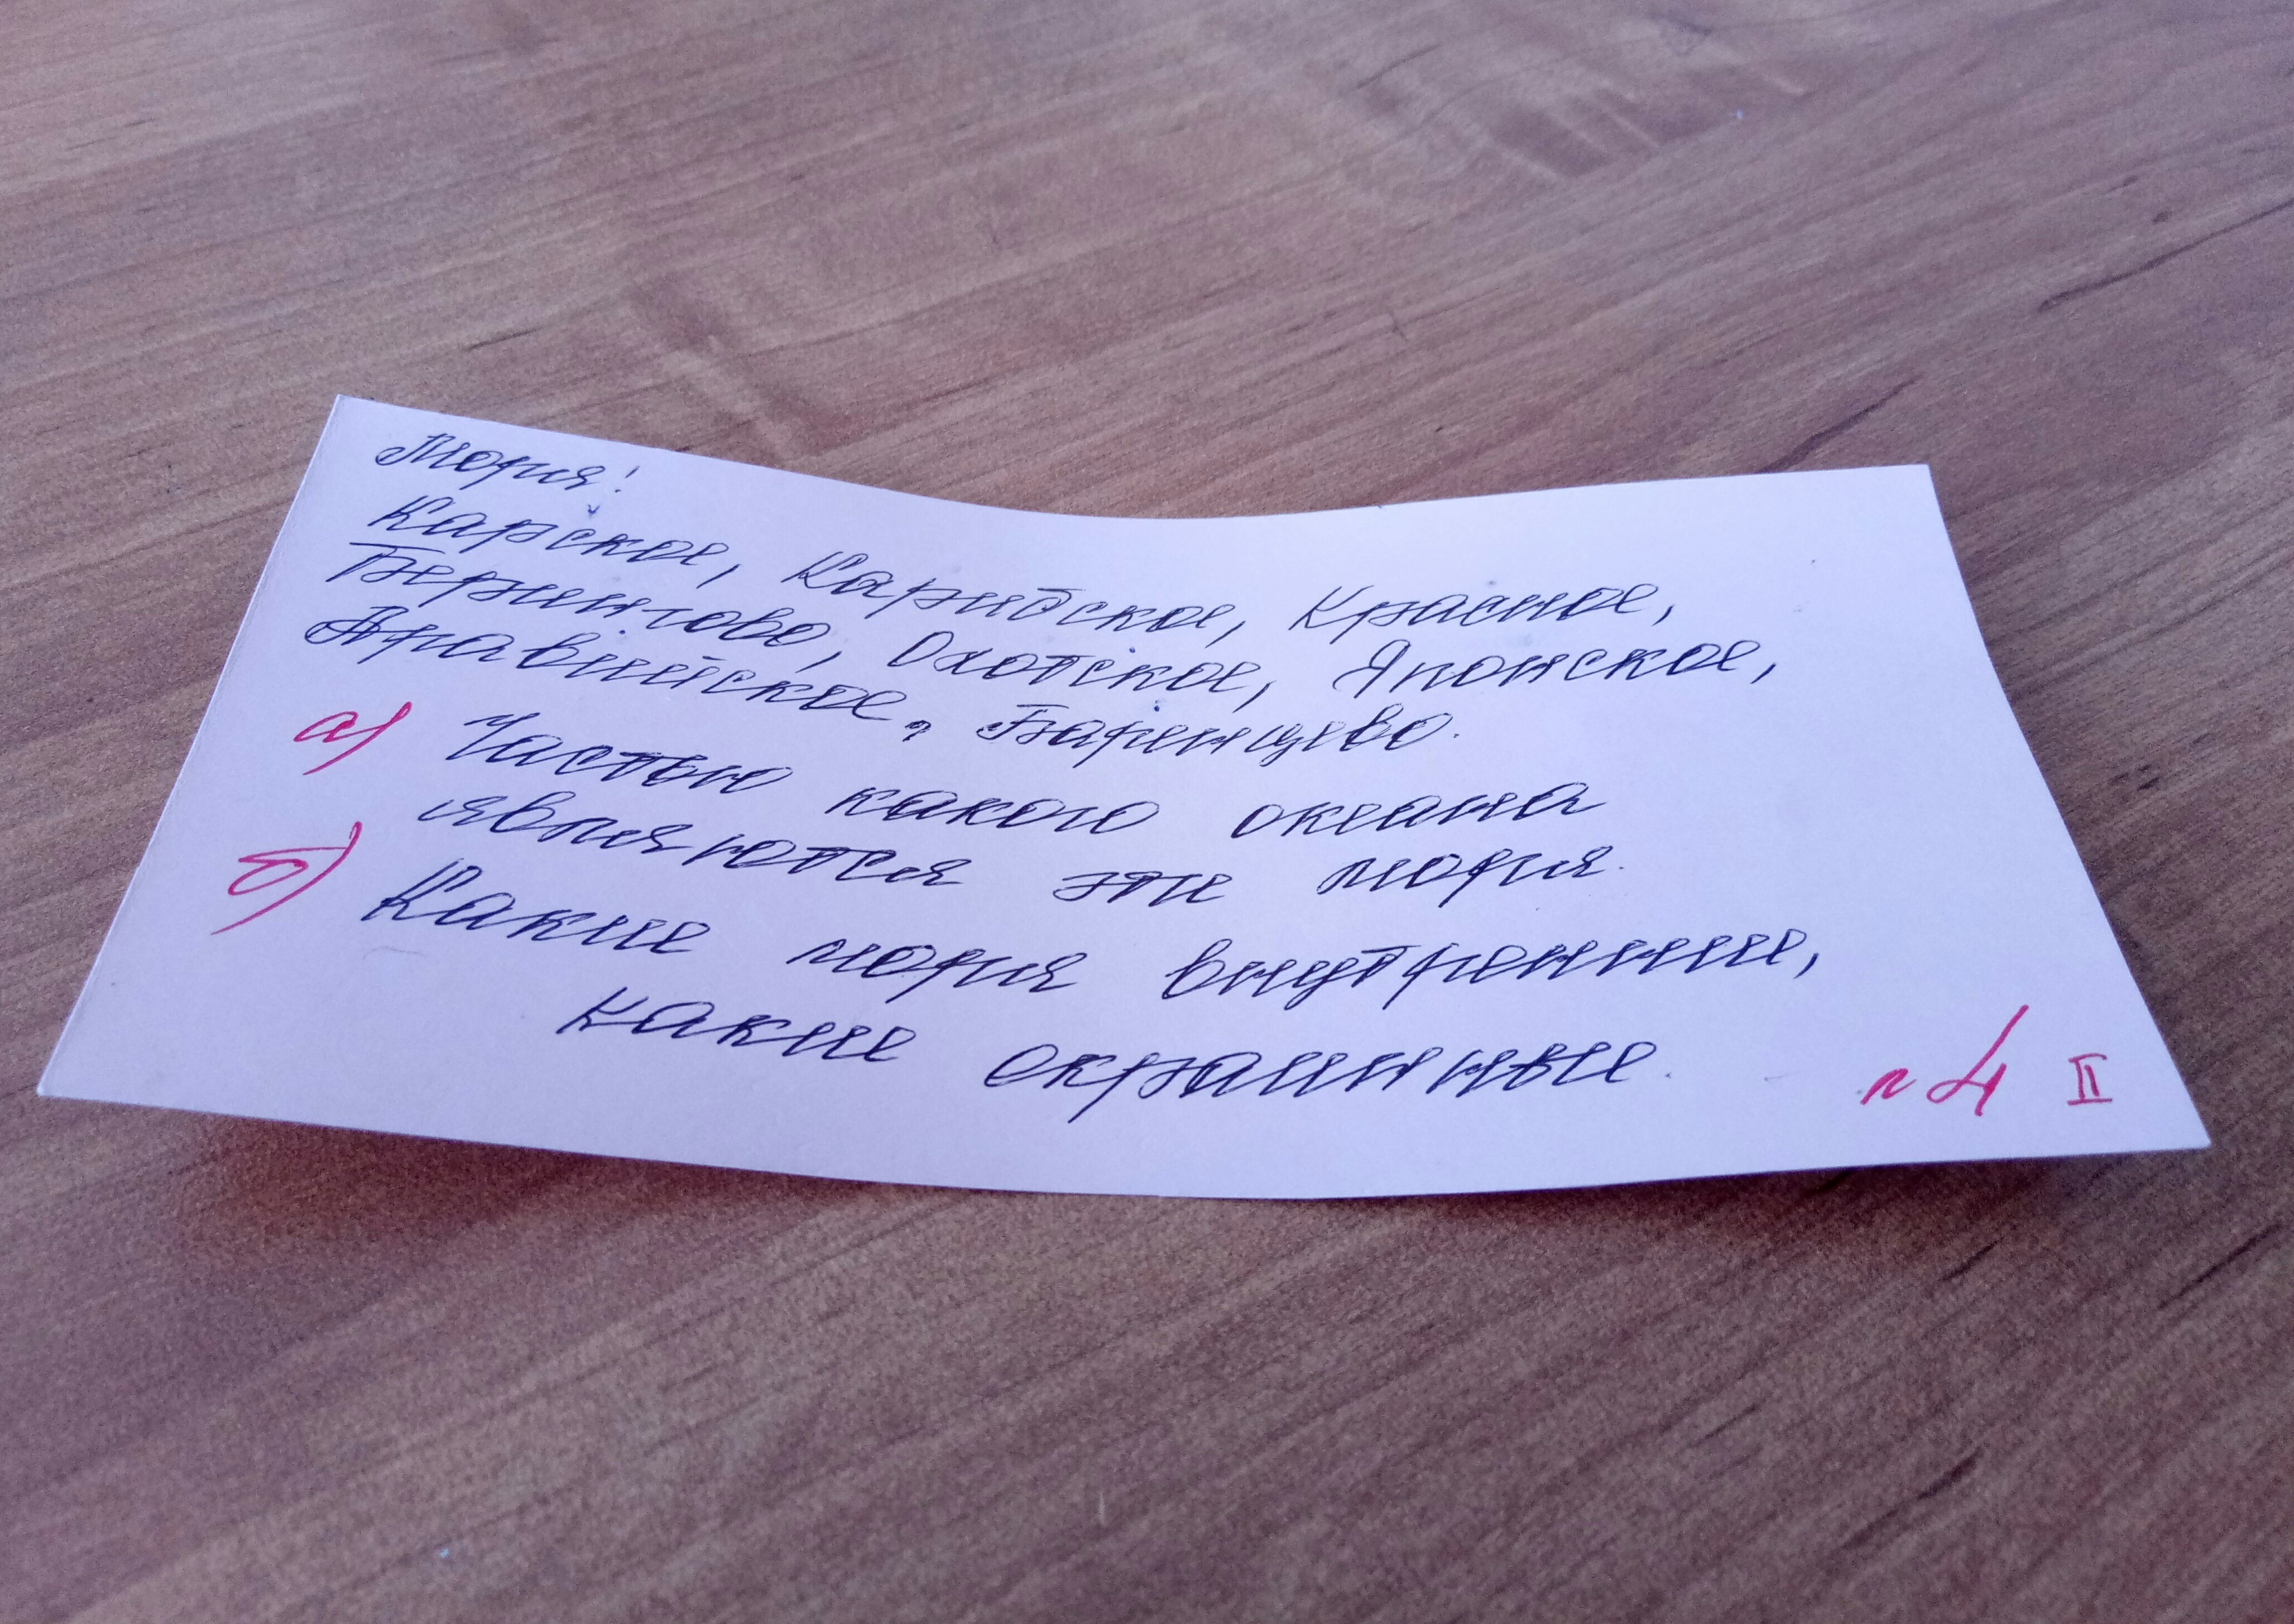 Моря:
Карское, Карибское, Красное,
Берингово, Охотское, Японское,
Аравийское, Баренцево.
а) Частью какого океана
являются эти моря.
б) Какие моря внутренние,
какие окраинные.
п 4 II